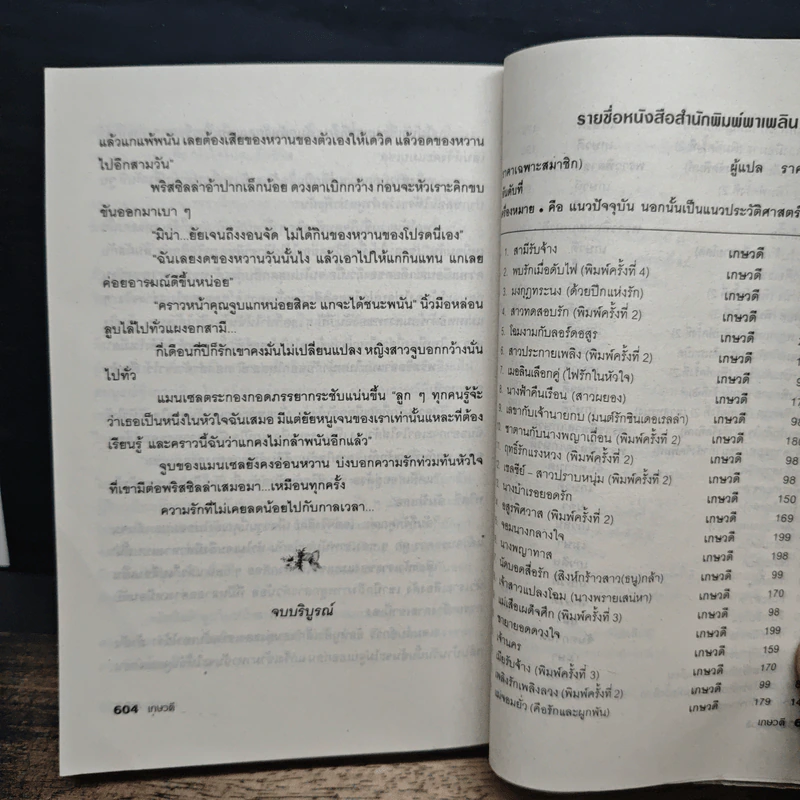 แล้วแกแพ้พนัน เลยต้องเสียของหวานของตัวเองให้เดวิด แล้วอดของหวาน
ไปอีกสามวัน"
พริสซิลล่าอ้าปากเล็กน้อย ดวงตาเบิกกว้าง ก่อนจะหัวเราะคิกขบ
ขันออกมาเบา ๆ
"มิน่า...ยัยเจนถึงงอนจัด ไม่ได้กินของหวานของโปรดนี่เอง"
"ฉันเลยงดของหวานวันนั้นไง แล้วเอาไปให้แกกินแทน แกเลย
ค่อยอารมณ์ดีขึ้นหน่อย"
"คราวหน้าคุณจูบแกหน่อยสิคะ แกจะได้ชนะพนัน" นิ้วมือหล่อน
ลูบไล้ไปทั่วแผงอกสามี...
กี่เดือนกี่ปีก็รักเขาคงมั่นไม่เปลี่ยนแปลง หญิงสาวจูบอกกว้างนั่น
ไปทั่ว
แมนเซลตระกองกอดภรรยากระชับแน่นขึ้น "ลูก ๆ ทุกคนรู้จ้ะ
ว่าเธอเป็นหนึ่งในหัวใจฉันเสมอ มีแต่ยัยหนูเจนของเราเท่านั้นแหละที่ต้อง
เรียนรู้ และคราวนี้ฉันว่าแกคงไม่กล้าพนันอีกแล้ว"
จูบของแมนเซลยังคงอ่อนหวาน บ่งบอกความรักท่วมท้นหัวใจ
ที่เขามีต่อพริสซิลล่าเสมอมา...เหมือนทุกครั้ง
ความรักที่ไม่เคยลดน้อยไปกับกาลเวลา...
จบบริบูรณ์
604 เกษวดี
รายชื่อหนังสือสำนักพิมพ์พาเพลิน
ราคาเฉพาะสมาชิก) ผู้แปล
อันดับที่
เครื่องหมาย • คือ แนวปัจจุบัน นอกนั้นเป็นแนวประวัติศาสตร์
1. สามีรับจ้าง เกษวดี
2. พบรักเมื่อดับไฟ (พิมพ์ครั้งที่ 4) เกษวดี
3. มงกุฎทระนง (ด้วยปีกแห่งรัก) เกษวดี
4. สาวทดสอบรัก (พิมพ์ครั้งที่ 2) เกษวดี
5. โฉมงามกับลอร์ดอสูร เกษวดี
6. สาวประกายเพลิง (พิมพ์ครั้งที่ 2) เกษวดี
7. เมอลินเลือกคู่ (ไฟรักในหัวใจ) เกษวดี
8. นางฟ้าคืนเรือน (สาวผยอง) เกษวดี
9. เลขากับเจ้านายกบ (มนต์รักซินเดอเรลล่า) เกษวดี 98
ซาตานกับนางพญาเถื่อน (พิมพ์ครั้งที่ 2) เกษวดี
ฤทธิ์รักแรงหวง (พิมพ์ครั้งที่ 2) เกษวดี 98
เรลซีย์ - สาวปราบหนุ่ม (พิมพ์ครั้งที่ 2) เกษวดี 98
นางบำเรอยอดรัก เกษวดี 150
อสูรพิศวาส (พิมพ์ครั้งที่ 2) เกษวดี 169
จอมนางกลางใจ เกษวดี 199
นางพญาทาส เกษวดี 198
นัดบอดสื่อรัก (สิงห์กร้าวสาว(ธนู)กล้า) เกษวดี 99
เจ้าสาวแปลงโฉม (นางพรายเสน่หา) เกษวดี 170
แม่เสือเผด็จศึก (พิมพ์ครั้งที่ 3) เกษวดี 98
ชายายอดดวงใจ เกษวดี 199
เจ้านคร เกษวดี 159
เมียรับจ้าง (พิมพ์ครั้งที่ 3) เกษวดี 170
เพลิงรักเพลิงลวง (พิมพ์ครั้งที่ 2) เกษวดี 99
แม่จอมยั่ว (คือรักและผูกพัน) เกษวดี 179
เกษวดี